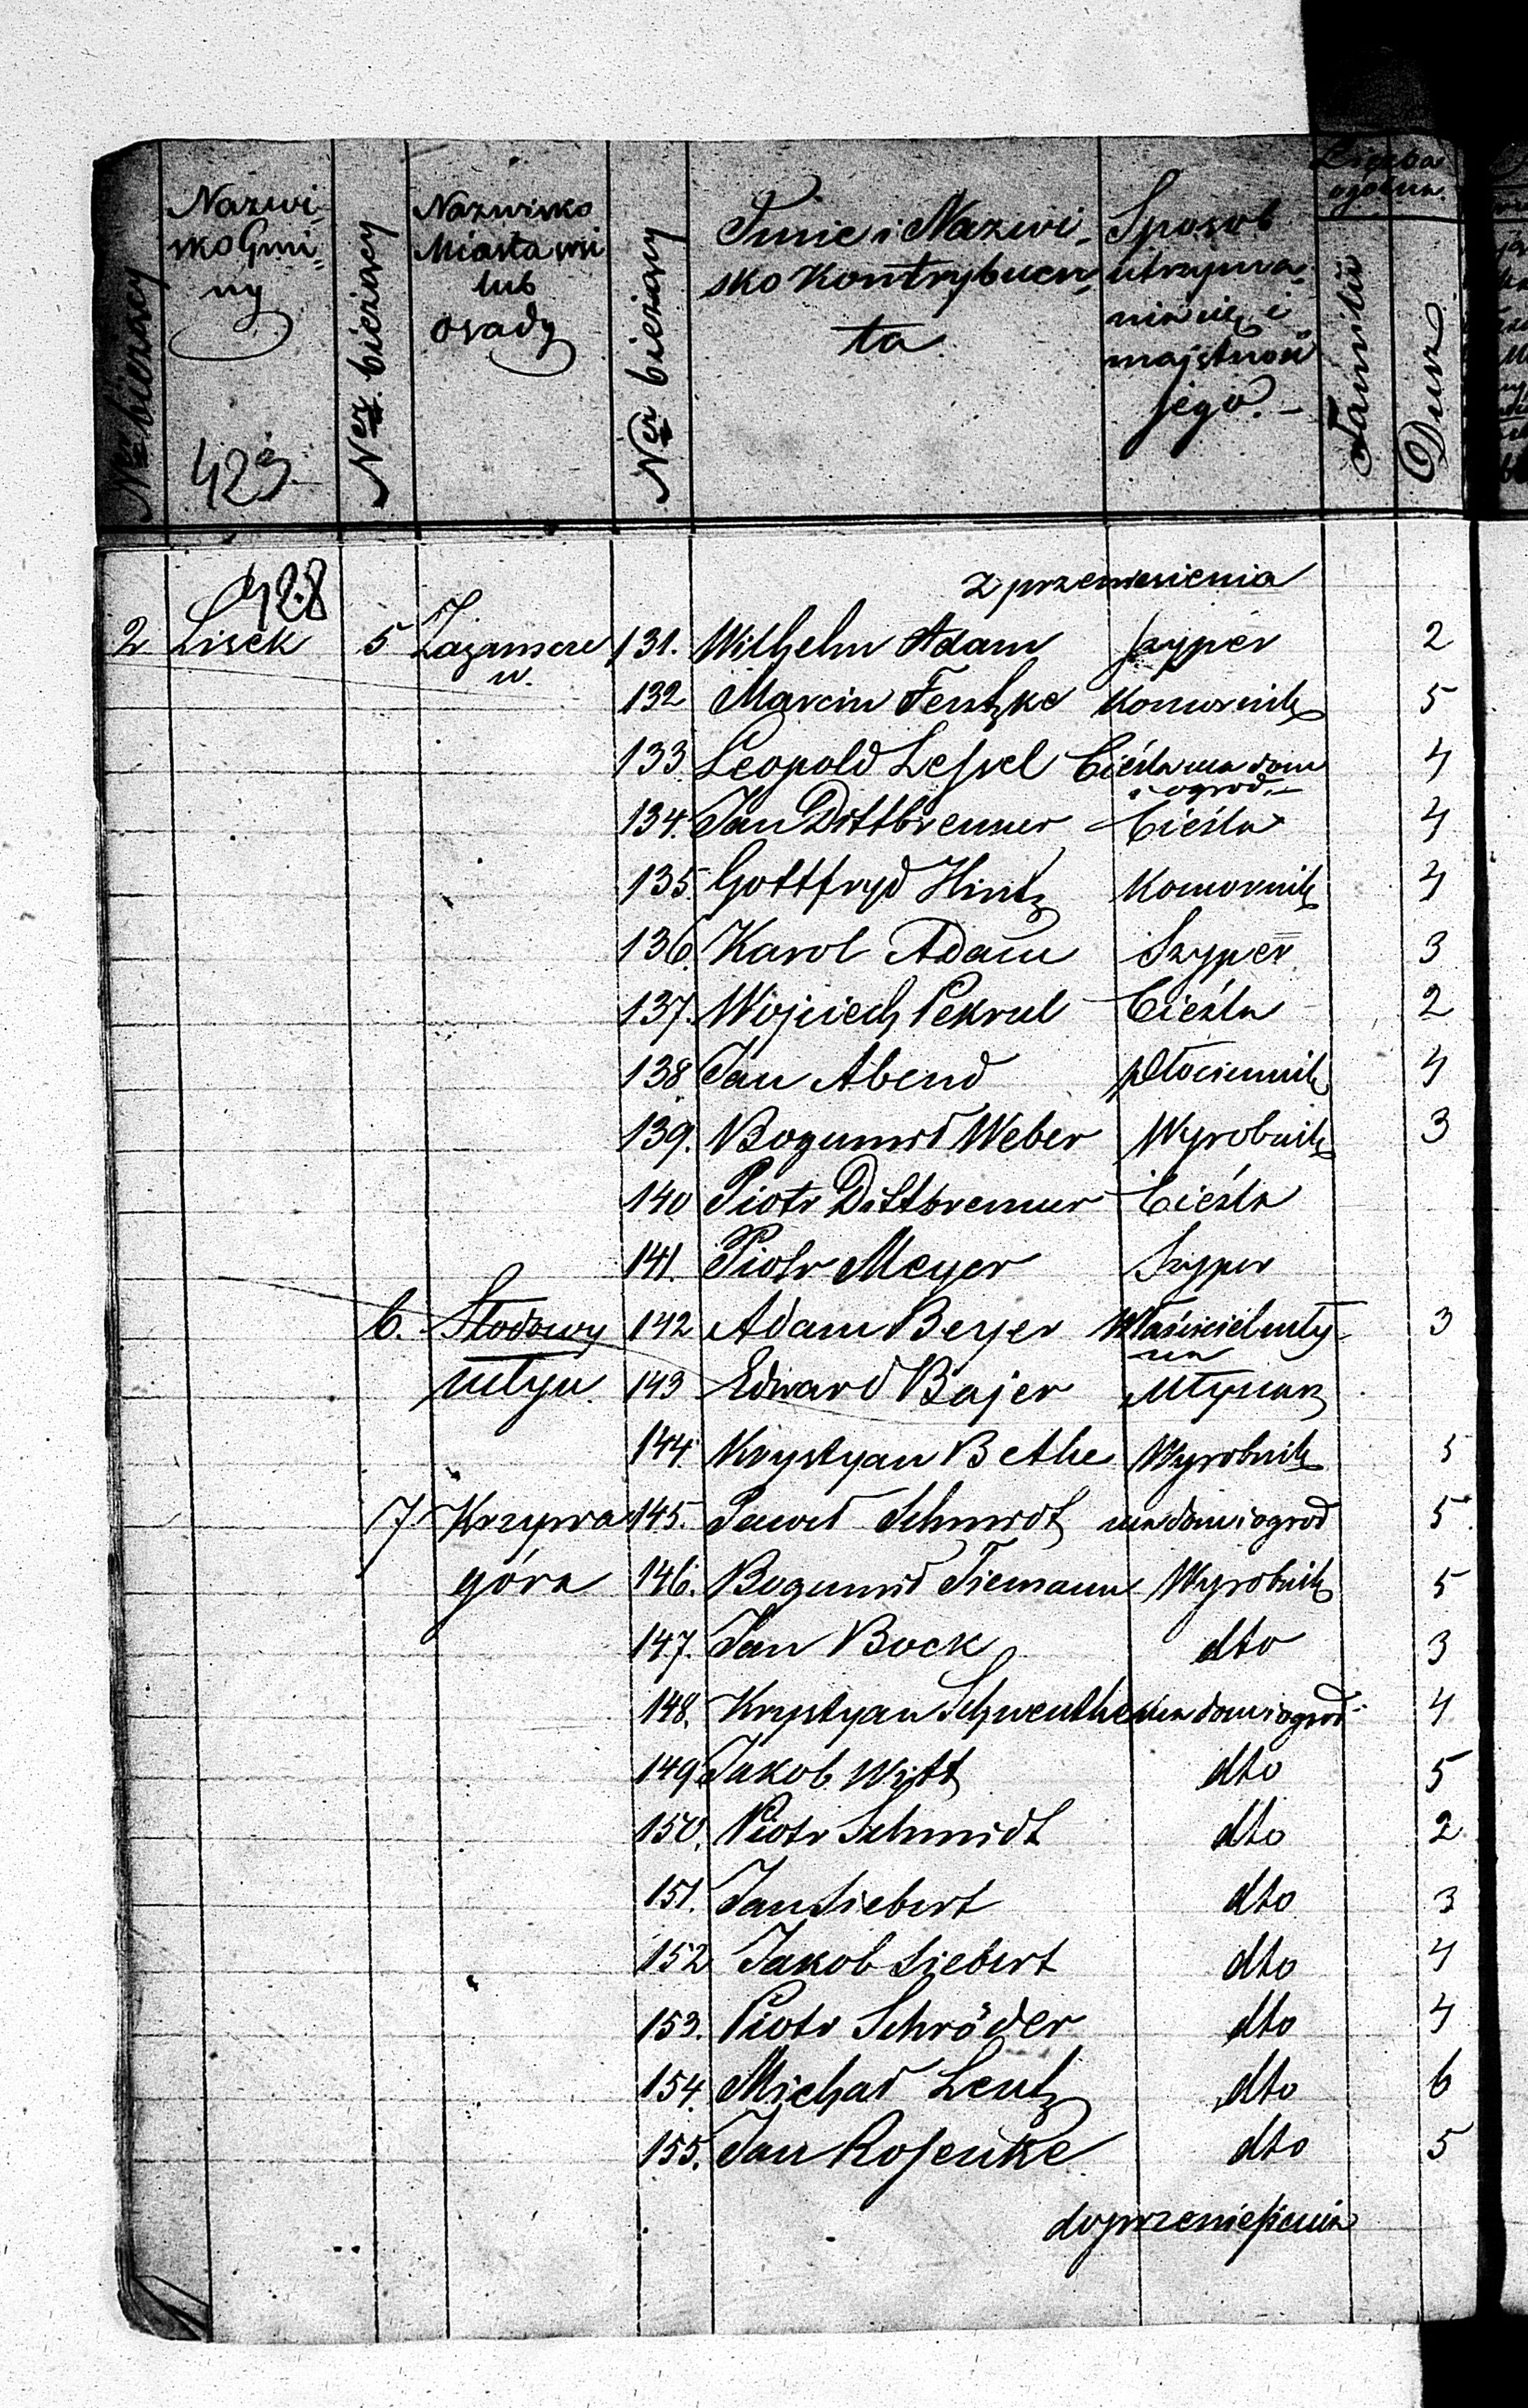 Ner bieżący
Nazwi-
sko Gmi-
ny
423
Ner bieżący
Nazwisko
Miasta wsi
lub
osady
Ner bieżący
Imie i Nazwi-
sko Kontrybuen-
ta
Sposob
utrzyma-
nia się i
majętność
jego. -
Liczba
ogólna
Familii
Dusz
428
z przeniesienia
2 Lisek 5 131. Wilhelm Adam Szyper 2
132 Marcin Fentzke Komornik 5
133. Leopold Lessel Cieśla ma dom 4
i ogrod. -
134. Jan Dittbrenner Cieśla 4
135. Gottfryd Hintz Komornik 4
136. Karol Adam Szyper 3
137. Wojciech Pekrul Cieśla 2
138 Jan Abend płóciennik 4
139. Bogumił Weber Wyrobnik 3
140 Piotr Dittbrenner Cieśla
141. Piotr Meyer Szyper
6. Słodowy 142 Adam Beyer Właściciel mły- 3
na
młyn. 143 Edward Bajer Młynarz
144 Krystyan Bethe Wyrobnik 5
7 Krzywa 145. Paweł Schmidt ma dom i ogrod 5
góra 146. Bogumił Tiemann Wyrobnik 5
147. Jan Bock dto 3
148. Krystyan Schwenthe ma dom i ogrod 4
149 Jakob Witt dto 5
150. Piotr Schmidt dto 2
151. Jan Siebert dto 3
152 Jakob Siebert dto 4
153. Piotr Schröder dto 4
154. Michał Lentz dto 6
155. Jan Rosenke dto 5
do przeniesienia